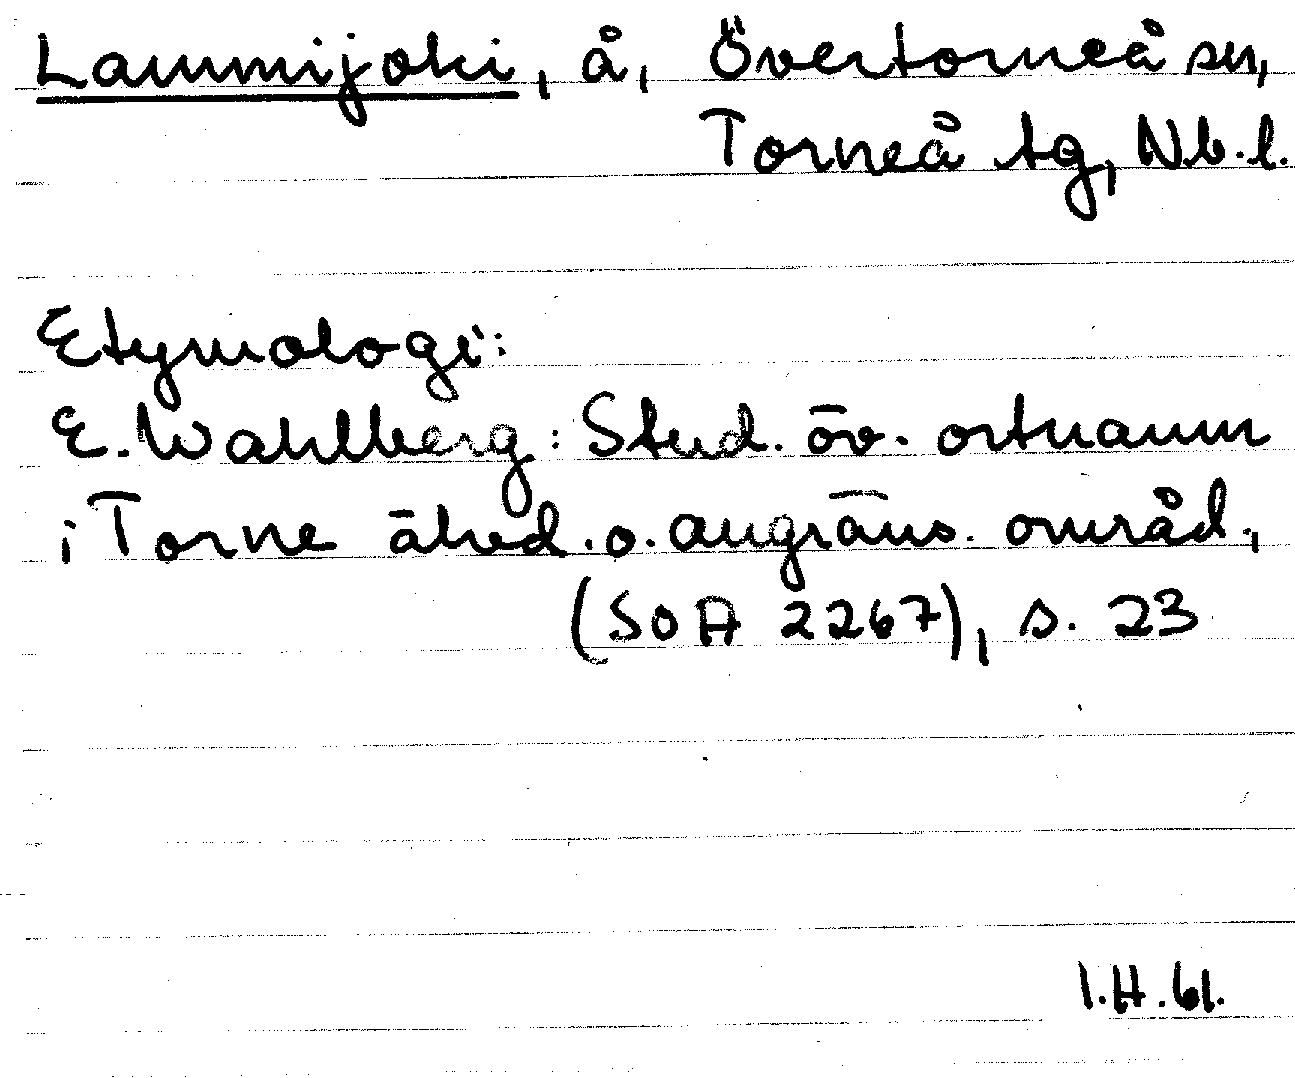 Lammijoki, å, Övertorneå sn,
Torneå tg, Nb.l.
Etymologi:
E. Wahlberg: Stud. öv. ortnamn
i Torne älvd. o. angräns. områd.,
(SOA 2267), s. 23
I.H.61.